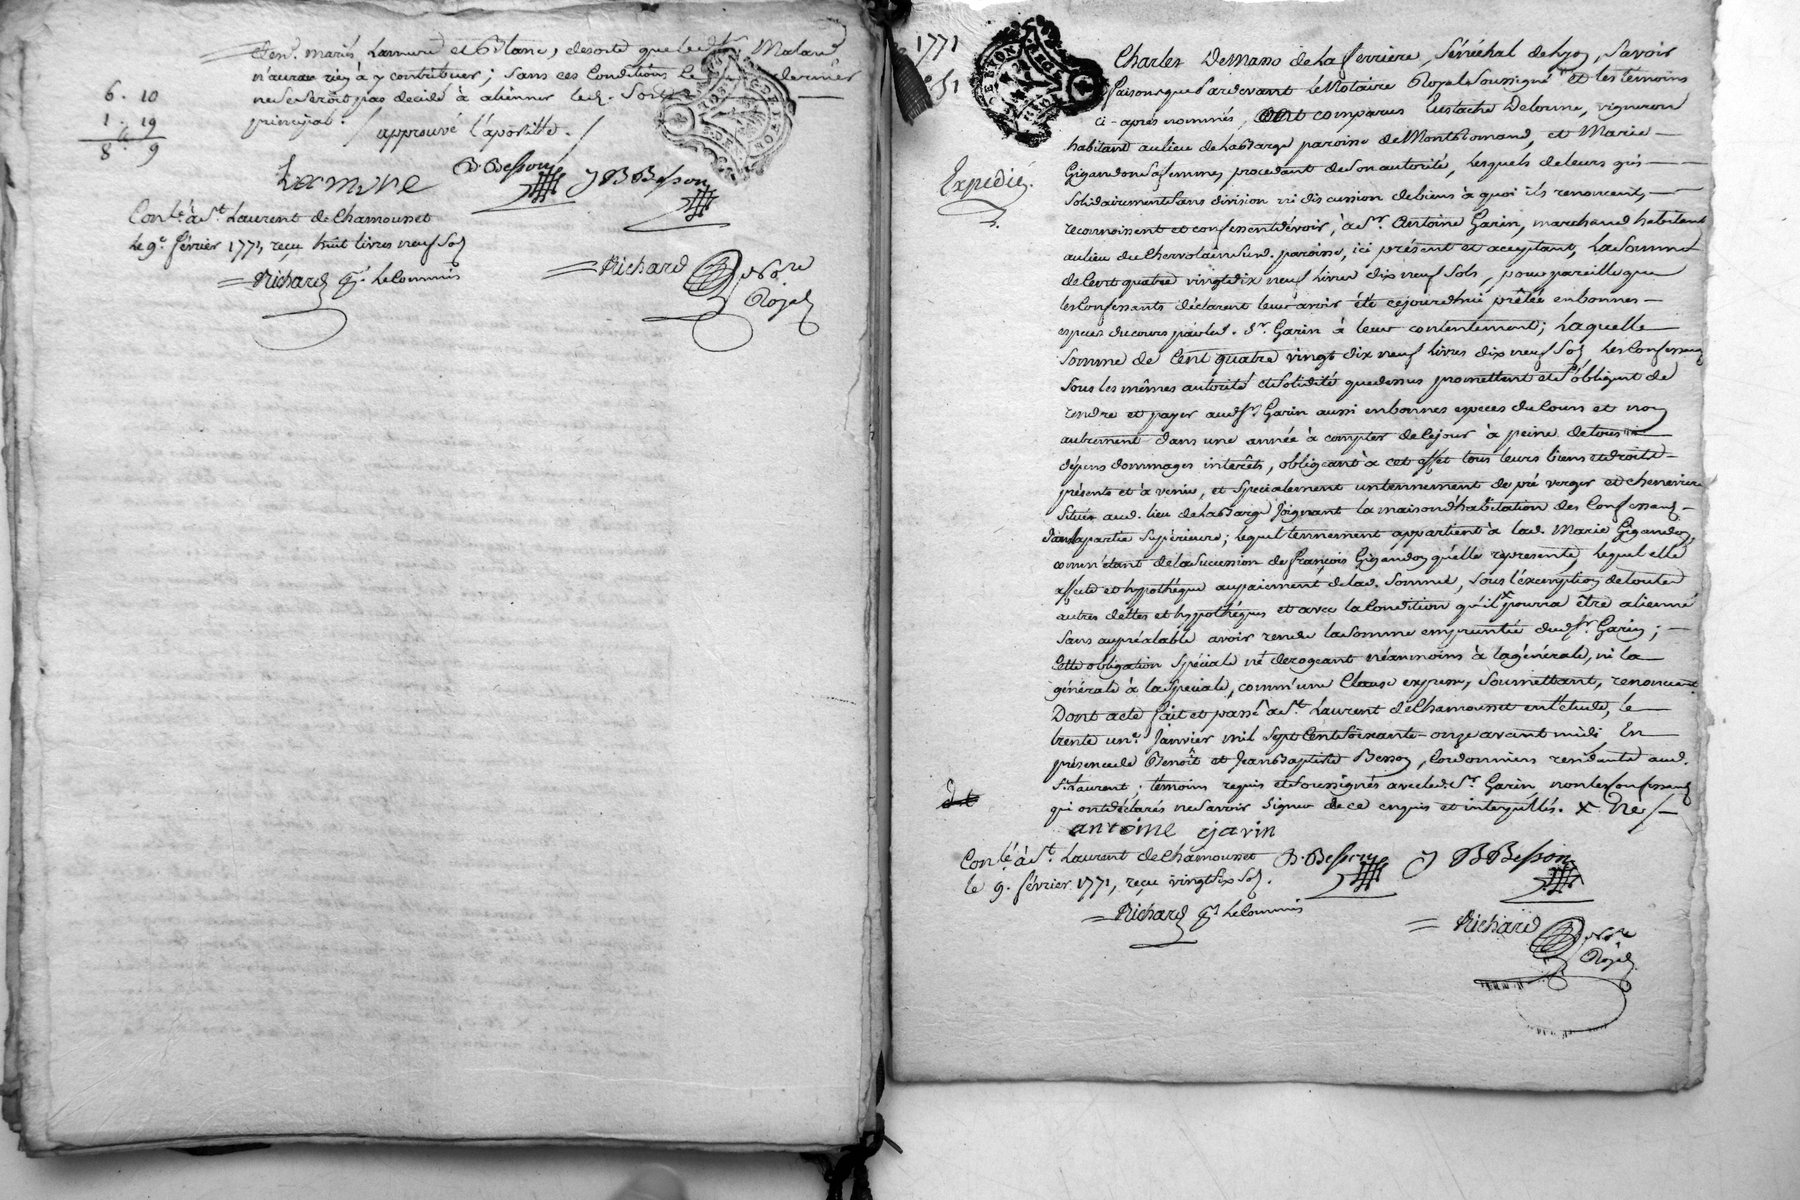 et end. mariés Larmure et Blanc, desorte que led. Sr. Maland
n'aura rien à y contribuer; sans ces Conditions le dernier
ne se seroit pas décidé à aliéner led.
principal. / approuvé l'apostille. /
6 . 10
1 . 19
8 . 9
Larmure
B Besson
J B Besson
Conlé à St. Laurent de Chamousset
le 9e. février 1771, reçu huit livres neuf Sols
Richard pr. le Commis
Richard
Nore
Royal
1771
31
Charles Demasso de la ferriere, Sénéchal de Lyon, Savoir
faisons que Pardevant le Notaire Royal Soussigné et les témoins
ci-après nommés, Ont comparus Eustache Delorme, vigneron
habitant au lieu de Labarge paroisse de Montromand, et Marie
Expedié.
Gigandon sa femme, procedant de son autorité, Lesquels de leurs grés
Solidairement Sans division ni discussion de biens à quoi ils renoncent,
reconnoissent et confessent dévoir, à Sr. Antoine Garin, marchand habitant
au lieu de Chervolain Susd. paroisse, ici présent et acceptant, La Somme
de Cent quatre vingt dix neuf Livres dix neuf Sols, pour pareille que
les Confessants déclarent leur avoir été cejourd'hui prêtée en bonnes
especes du cours par led. Sr. Garin à leur contentement; Laquelle
Somme de Cent quatre vingt dix neuf Livres dix neuf Sols, Les Confessants
Sous les mêmes autorité et Solidité que dessus promettent et S'obligent de
rendre et payer aud. Sr. Garin aussi en bonnes especes du Cours et non
autrement dans une année à compter de Cejour à peine de tous
dépens dommages intérêts, obligeant à cet effet tous leurs biens et droits
présents et à venir, et Specialement un tennement de pré verger et cheneviere
Situés aud. lieu de Labarge Joignant la maison d'habitation des Confessants
dans la partie Supérieure; Lequel tennement appartient à lad. Marie Gigandon,
comm'étant de la Succession de françois Gigandon qu'elle represente, Lequel elle
affecte et hypothéque au paiement de lad. Somme, Sous l'éxemption de toutes
autres dettes et hypothéques et avec la Condition qu'il x pourra être aliené
Sans au préalable avoir rendu la Somme empruntée dud. Sr. Garin;
Cette obligation Spéciale ne dérogeant néanmoins à la générale, ni la
générale à la Speciale, comm'une Clause expresse, Soumettant, renonceant
Dont acte fait et passé à St. Laurent de Chamousset en l'étude, le
trente une Janvier mil Sept Cent Soixante-onze avant midi En
présence de Benoît et Jean Baptiste Besson, Cordonniers residants aud.
St. Laurent, témoins requis et Soussignés avec led. Sr. Garin, non les Confessants
qui ont déclarés ne Savoir Signer de ce enquis et interpellés. x Ne /
antoine garin
Conlé à St. Laurent de Chamousset
le 9. février 1771, reçu vingt Six Sols.
B. Besson
J B Besson
Richard pr. le Commis
Richard
Nore
Royal